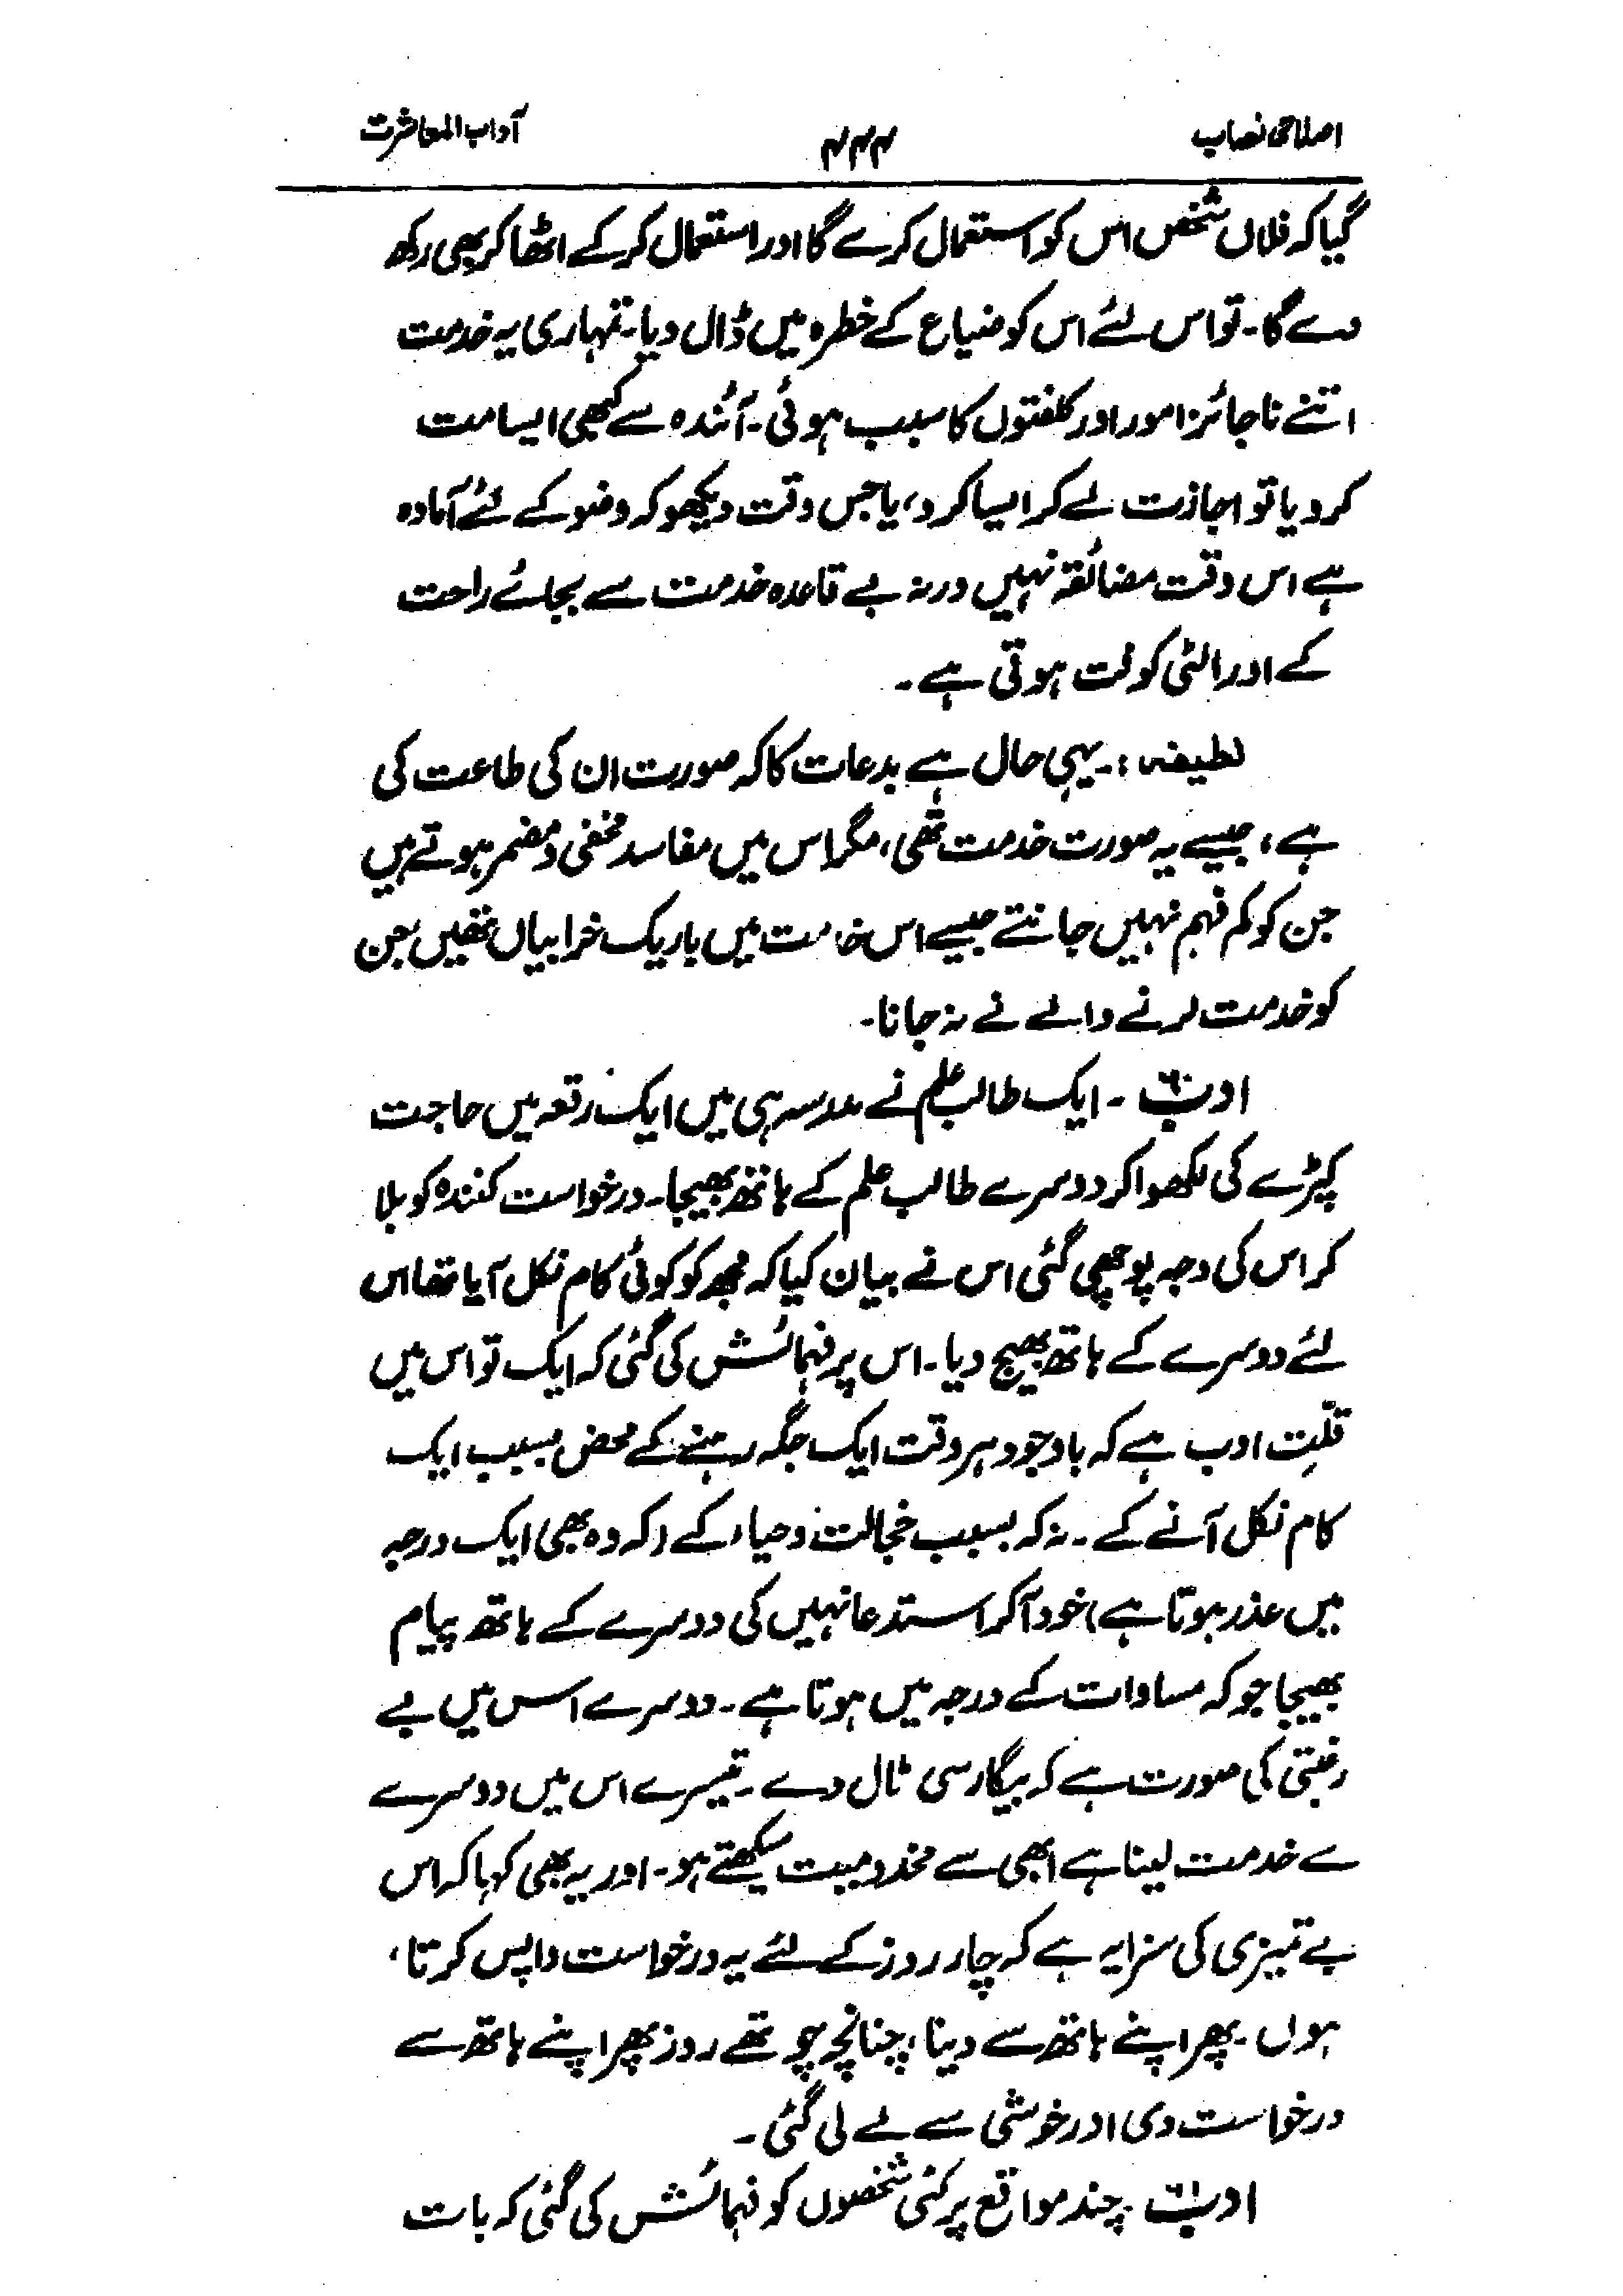 اصلاحی نصاب ۴۴۴ آداب المعاشرت
گیا کہ فلاں شخص اس کو استعمال کرے گا اور استعمال کر کے اٹھا کر بھی رکھ
دے گا۔ تو اس لئے اس کو ضیاع کے خطرہ میں ڈال دیا۔ تمہاری یہ خدمت
اتنے ناجائز امور اور کلفتوں کا سبب ہوئی۔ آئندہ سے کبھی ایسا مت
کرو یا تو اجازت لے کر ایسا کرو، یا جس وقت دیکھو کہ وضو کے لئے آمادہ
ہے اس وقت مضائقہ نہیں ورنہ بے قاعدہ خدمت سے بجائے راحت
کے اور الٹی کوفت ہوتی ہے۔
لطیفہ :۔ یہی حال ہے بدعات کا کہ صورت ان کی طاعت کی
ہے، جیسے یہ صورت خدمت تھی، مگر اس میں مفاسد مخفی و مضمر ہوتے ہیں
جن کو کم فہم نہیں جانتے جیسے اس خدمت میں باریک خرابیاں تھیں جن
کو خدمت کرنے والے نے نہ جانا۔
ادب ٦٠ ۔ ایک طالب علم نے مدرسہ ہی میں ایک رقعہ میں حاجت
کپڑے کی لکھوا کر دوسرے طالب علم کے ہاتھ بھیجا۔ درخواست کنندہ کو بلا
کر اس کی وجہ پوچھی گئی اس نے بیان کیا کہ مجھ کو کوئی کام نکل آیا تھا اس
لئے دوسرے کے ہاتھ بھیج دیا۔ اس پر فہمائش کی گئی کہ ایک تو اس میں
قلّتِ ادب ہے کہ باوجود ہر وقت ایک جگہ رہنے کے محض بسبب ایک
کام نکل آنے کے ۔ نہ کہ بسبب خجالت و حیاء کے (کہ وہ بھی ایک درجہ
میں عذر ہوتا ہے) خود آکر استدعا نہیں کی دوسرے کے ہاتھ پیام
بھیجا جو کہ مساوات کے درجہ میں ہوتا ہے۔ دوسرے اس میں بے
رغبتی کی صورت ہے کہ بیگار سی ٹال دے ۔ تیسرے اس میں دوسرے
سے خدمت لینا ہے ابھی سے مخدومیت سیکھتے ہو۔ اور یہ بھی کہا کہ اس
بے تمیزی کی سزا یہ ہے کہ چار روز کے لئے یہ درخواست واپس کرتا
ہوں۔ پھر اپنے ہاتھ سے دینا، چنانچہ چوتھے روز پھر اپنے ہاتھ سے
درخواست دی اور خوشی سے لے لی گئی ۔
ادب ٦١ ۔ چند مواقع پر کئی شخصوں کو فہمائش کی گئی کہ بات